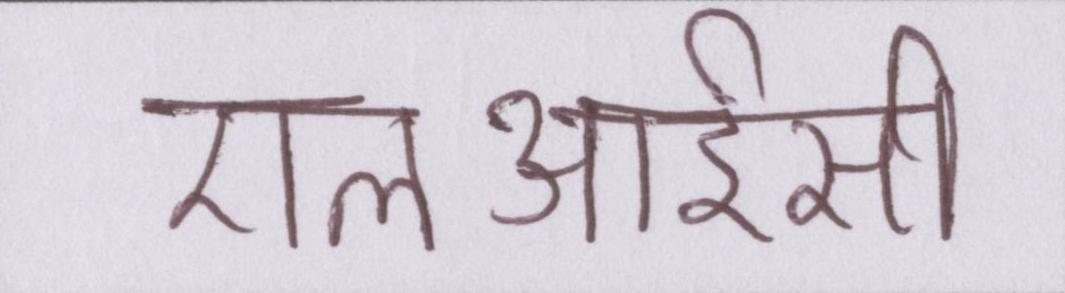 एलआईसी